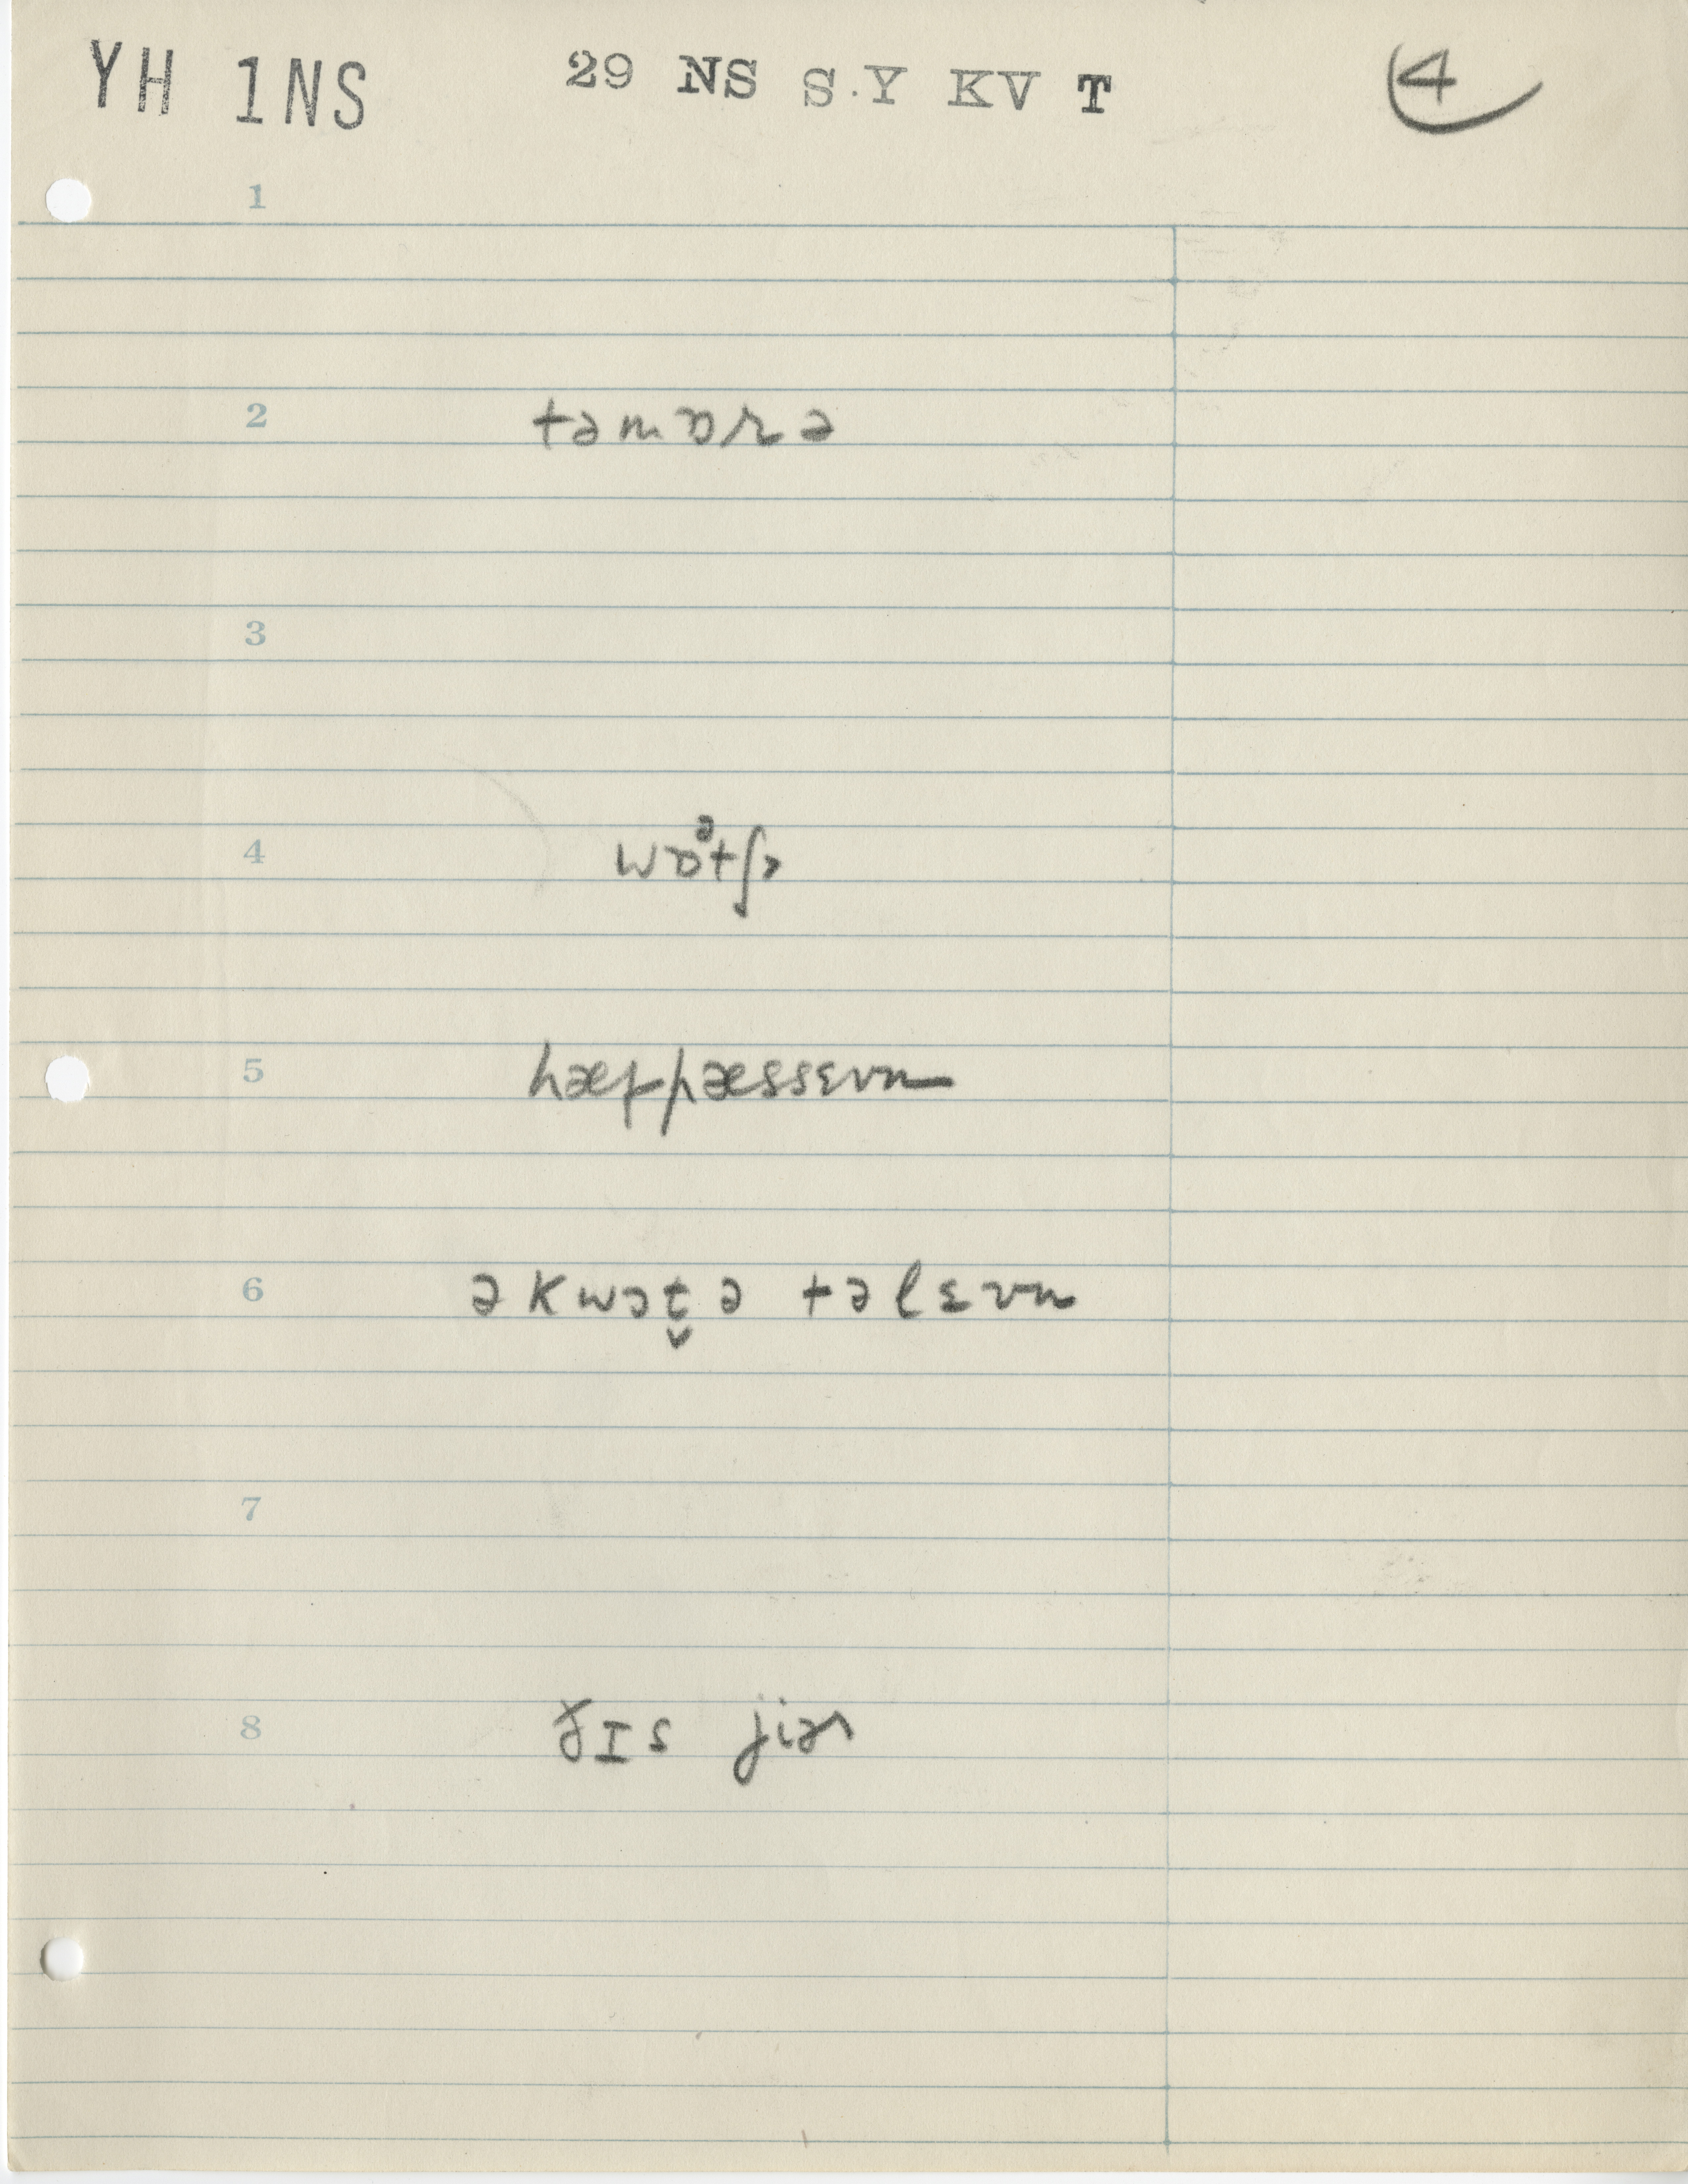 YH 1NS 29 NS S.Y KV T 4
1
2 təmɒrə
3
4 wɒᵊtʃɚ
5 hæf pæssɛvn
6 ə kwɔt̬ə təlɛvn
7
8 ðɪs jiɚ